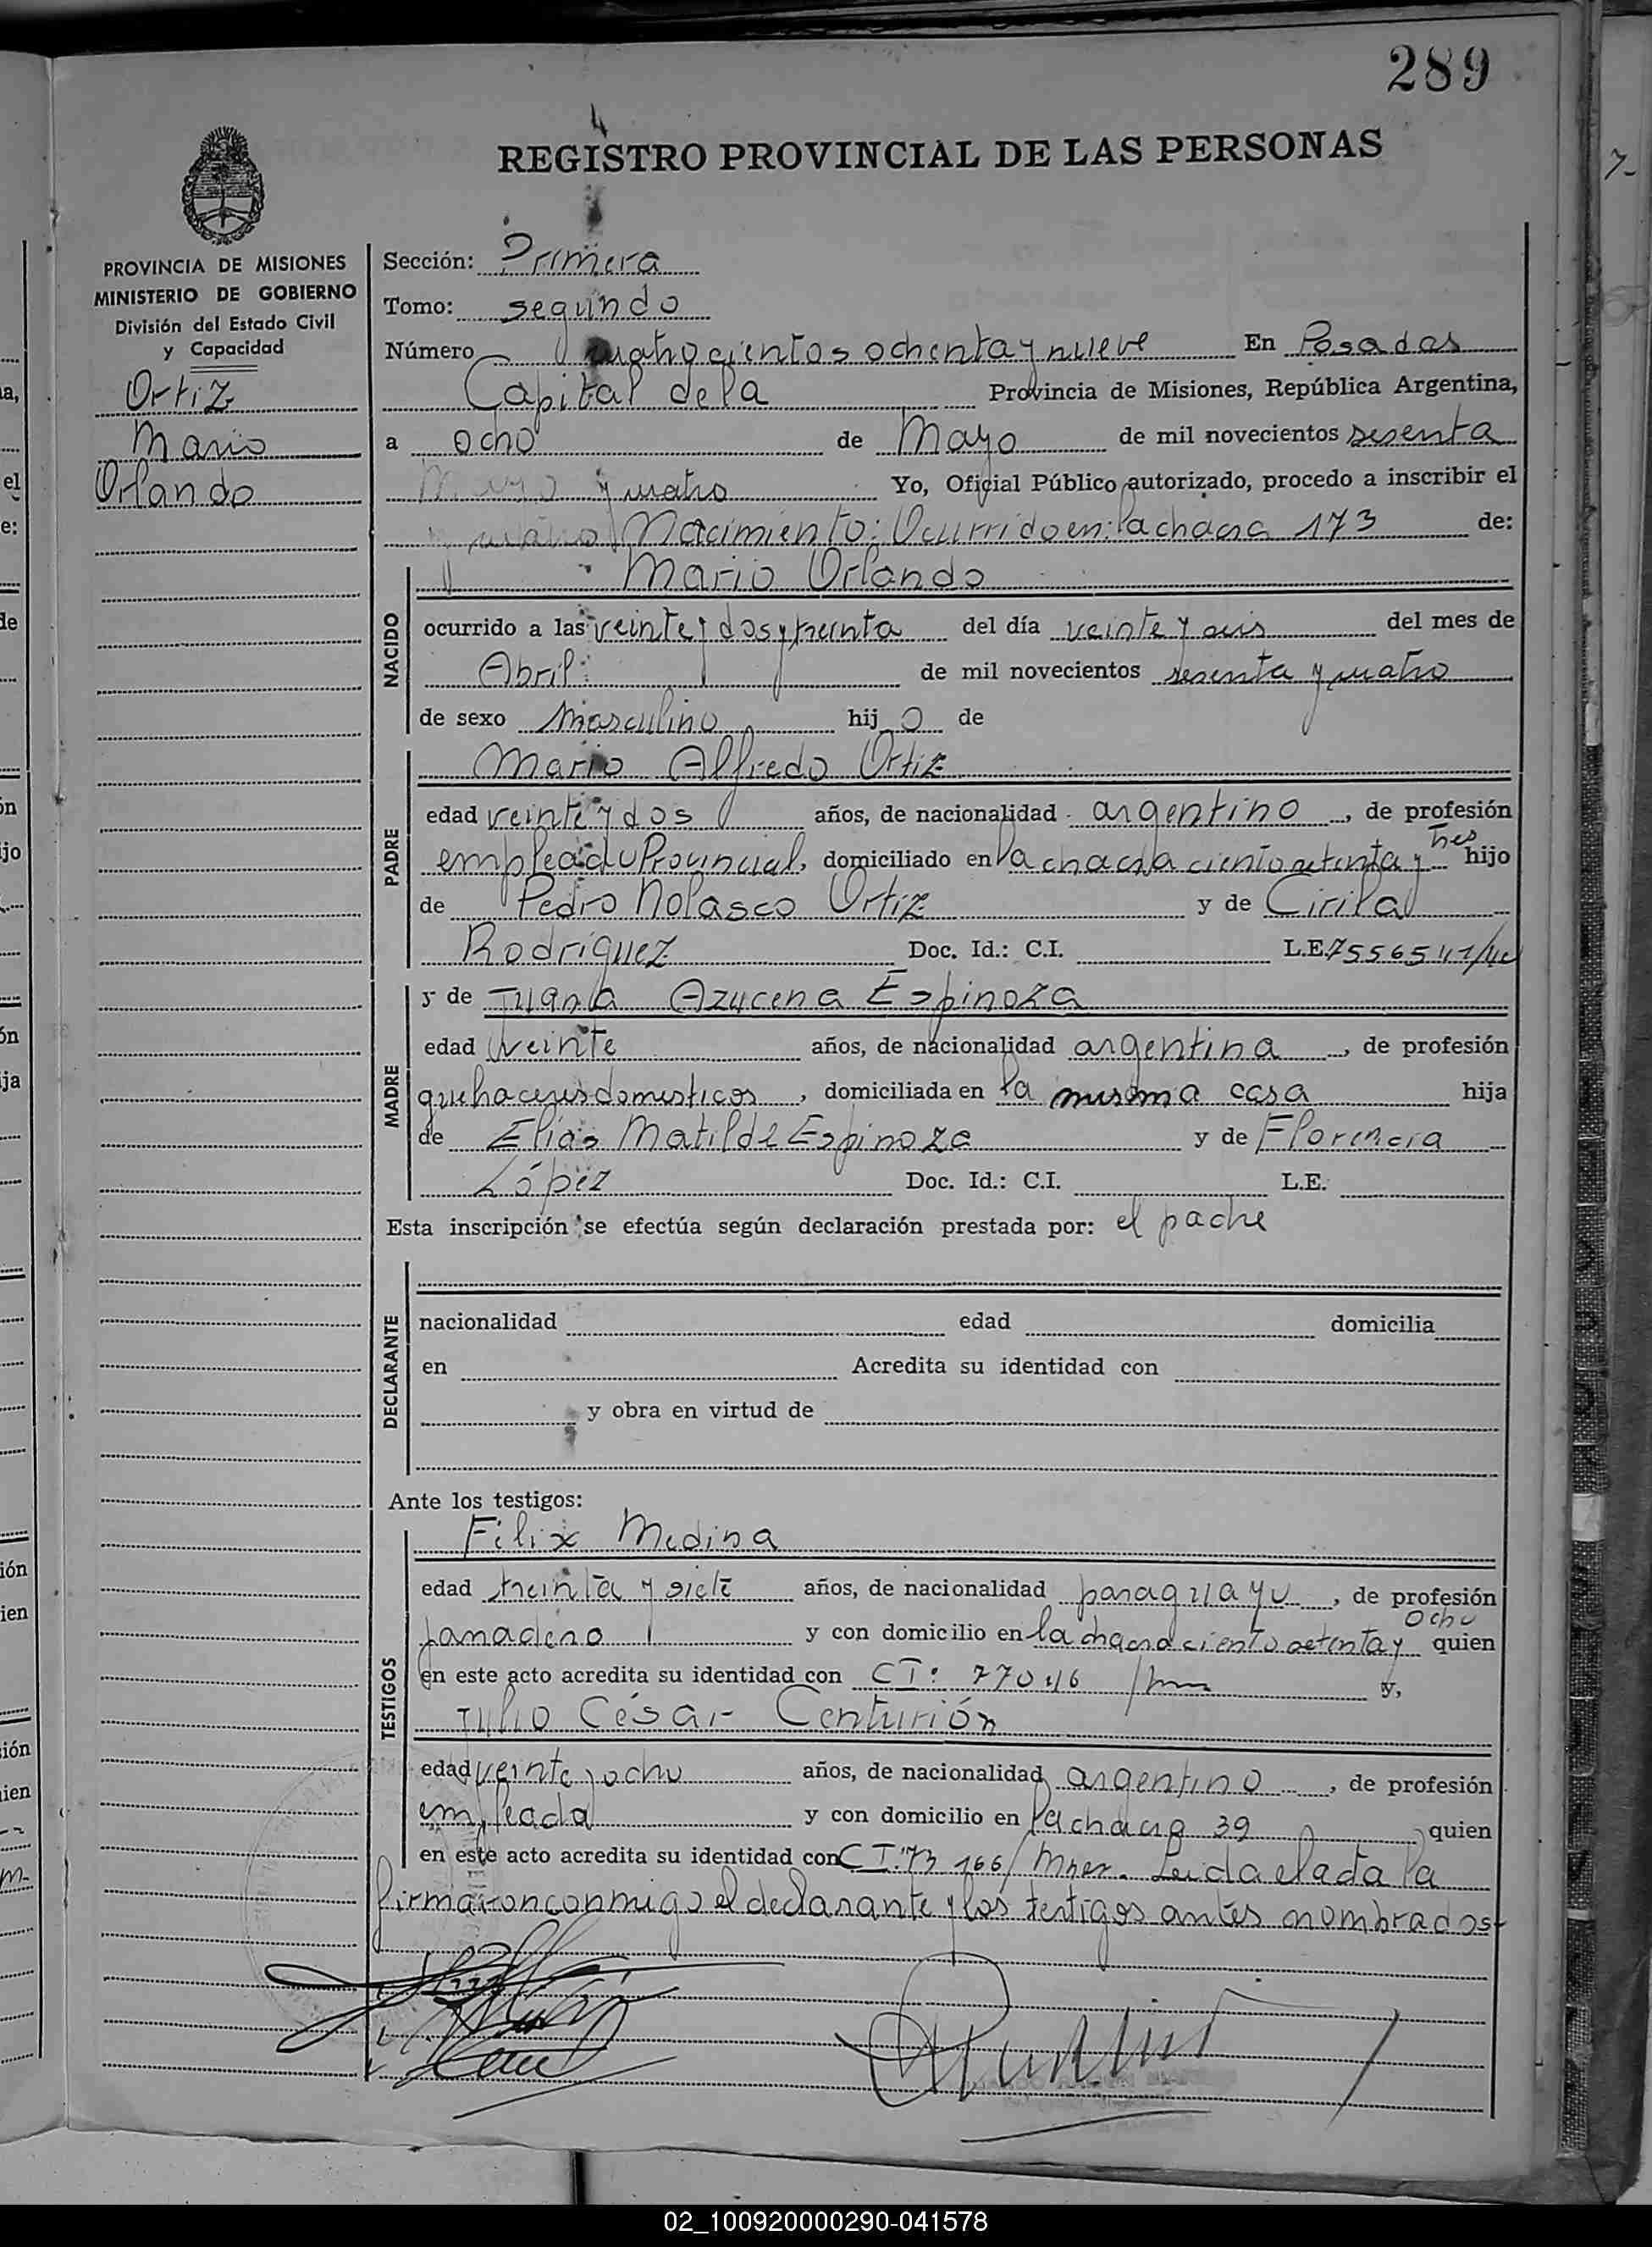 289
REGISTRO PROVINCIAL DE LAS PERSONAS
PROVINCIA DE MISIONES
MINISTERIO DE GOBIERNO
División del Estado Civil
y Capacidad
Ortiz
Mario
Orlando
Sección: Primera
Tomo: segundo
Número cuatrocientos ochenta y nueve En Posadas
Capital de la Provincia de Misiones, República Argentina,
a ocho de Mayo de mil novecientos sesenta
y cuatro Yo, Oficial Público autorizado, procedo a inscribir el
Nacimiento: Ocurrido en: la chacra 173 de:
NACIDO
Mario Orlando
ocurrido a las veinte y dos y treinta del día veinte y seis del mes de
Abril: de mil novecientos sesenta y cuatro
de sexo masculino hijo de
PADRE
Mario Alfredo Ortiz
edad veinte y dos años, de nacionalidad argentino, de profesión
empleado Provincial, domiciliado en la chacra ciento setenta y tres hijo
de Pedro Nolasco Ortiz y de Cirila
Rodríguez Doc. Id.: C.I. L.E.
MADRE
y de Juana Azucena Espinoza
edad veinte años, de nacionalidad argentina, de profesión
quehaceres domesticos, domiciliada en la misma casa hija
de Elias Matilde Espinoza y de Florencia
López Doc. Id.: C.I. L.E.
Esta inscripción se efectúa según declaración prestada por: el padre
DECLARANTE
nacionalidad edad domicilia
en Acredita su identidad con
y obra en virtud de
Ante los testigos:
TESTIGOS
Félix Medina
edad treinta y siete años, de nacionalidad paraguayo, de profesión
panadero y con domicilio en la chacra ciento setenta y ocho quien
en este acto acredita su identidad con CI: y,
Julio César Centurión
edad veinte y ocho años, de nacionalidad argentino, de profesión
empleado y con domicilio en la chacra 39 quien
en este acto acredita su identidad con C I. 73 166/Mnes. Leida el acta la
firmaron conmigo el declarante y los testigos antes nombrados
02_100920000290-041578